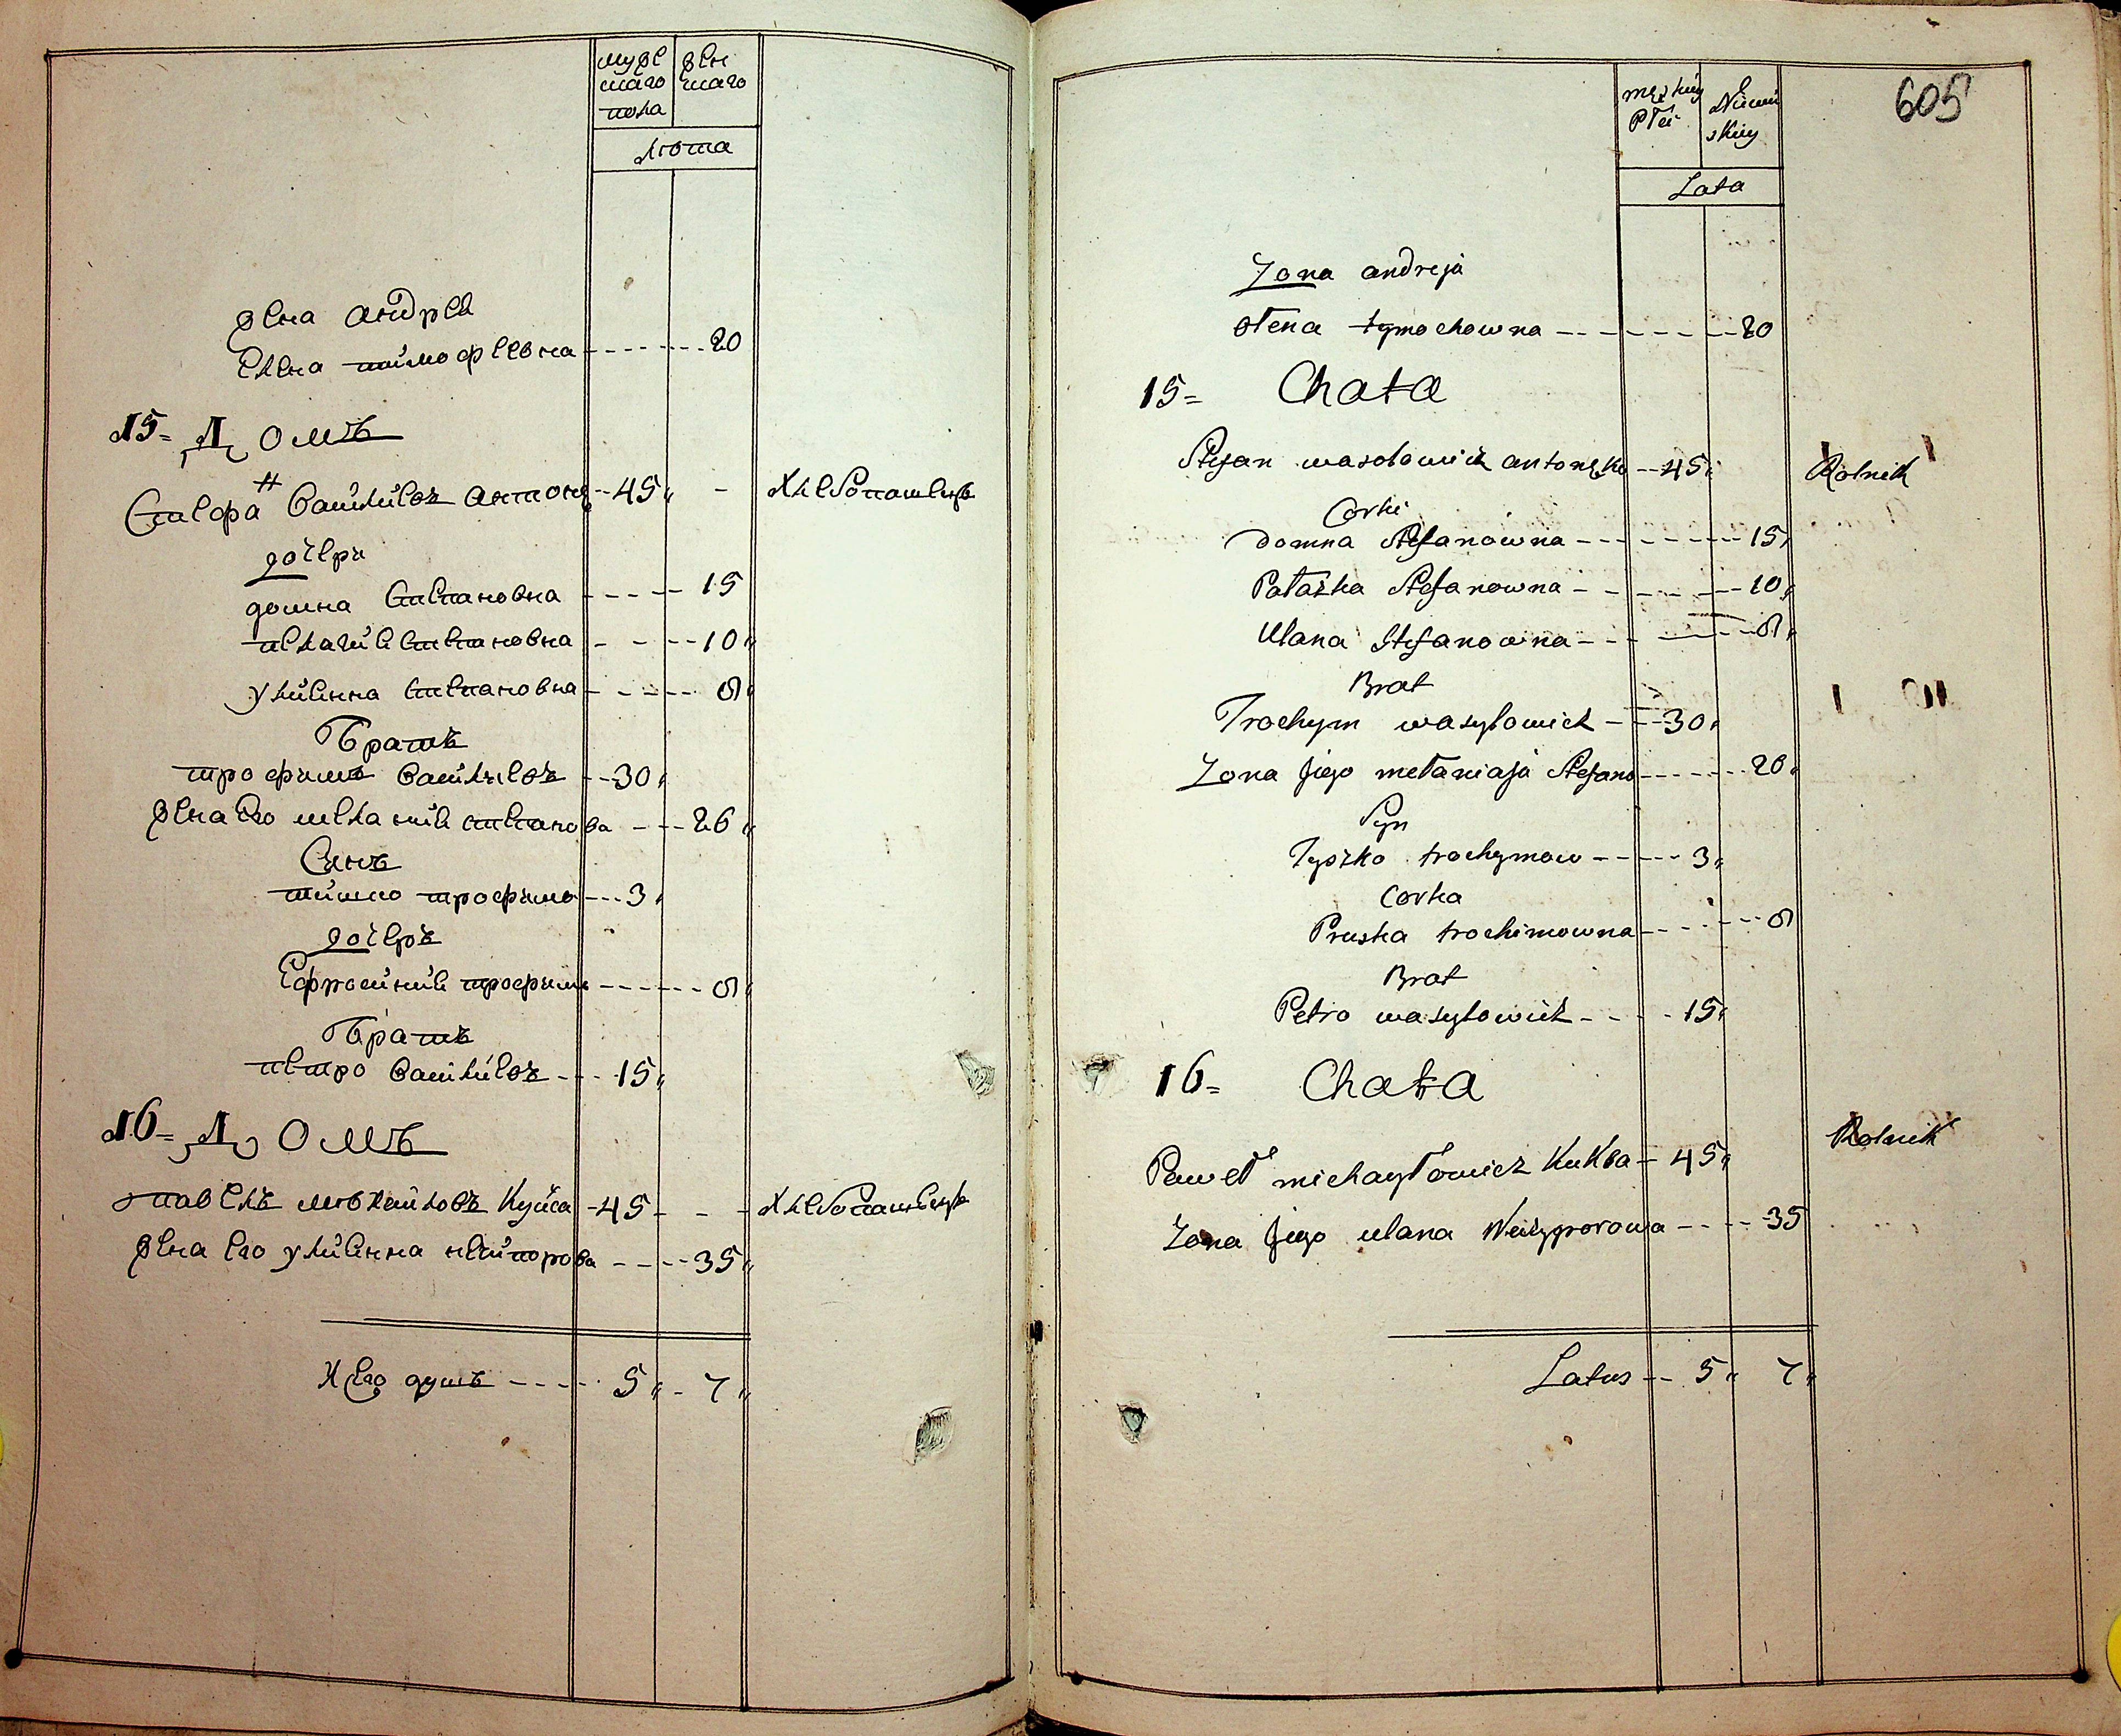 мужескаго пола
женскаго
лѣта
жена андрея
Елена тимофеевна - - - 20
15= Домъ
Стефа Васильевъ антоня - - 45 - Хлебопашецъ
дочери
домна степановна - - - 15
пелагия степановна - - - 10
улияна степановна - - - 8
Братъ
трофимъ Васильевъ - - 30
жена его мелания степанова - - - 26
Синъ
тишко трофимо - - - 3
дочеръ
Ефросиния трофимо - - - 8
Братъ
петро Васильевъ - - - 15
16= Домъ
павелъ михайловъ - 45 - Хлебопашецъ
жена его улияна - - - 35
душъ - - - 5 - 7
605
męzkiy Płci
Lata
Zona andreja
ołena tymochowna - - - 20
15= Chata
Stefan wasolowicz antonęko - - 45 Rolnik
Corki
Domna Stefanowna - - - 15
Pałażka Stefanowna - - - 10
Ulana Stefanowna - - - 8
Brat
Trochym wasylowicz - - - 30
Zona jiego mełaniaja Stefano - - - 20
Syn
Tyszko trochymow - - - 3
Corka
Pruska trochimowna - - - 8
Brat
Petro wasylowicz - - - 15
16= Chata
Paweł michayłowicz KuKsa - 45 Rolnik
Zona jiego ulana Neczyporowa - - - 35
Latus - - 5 7